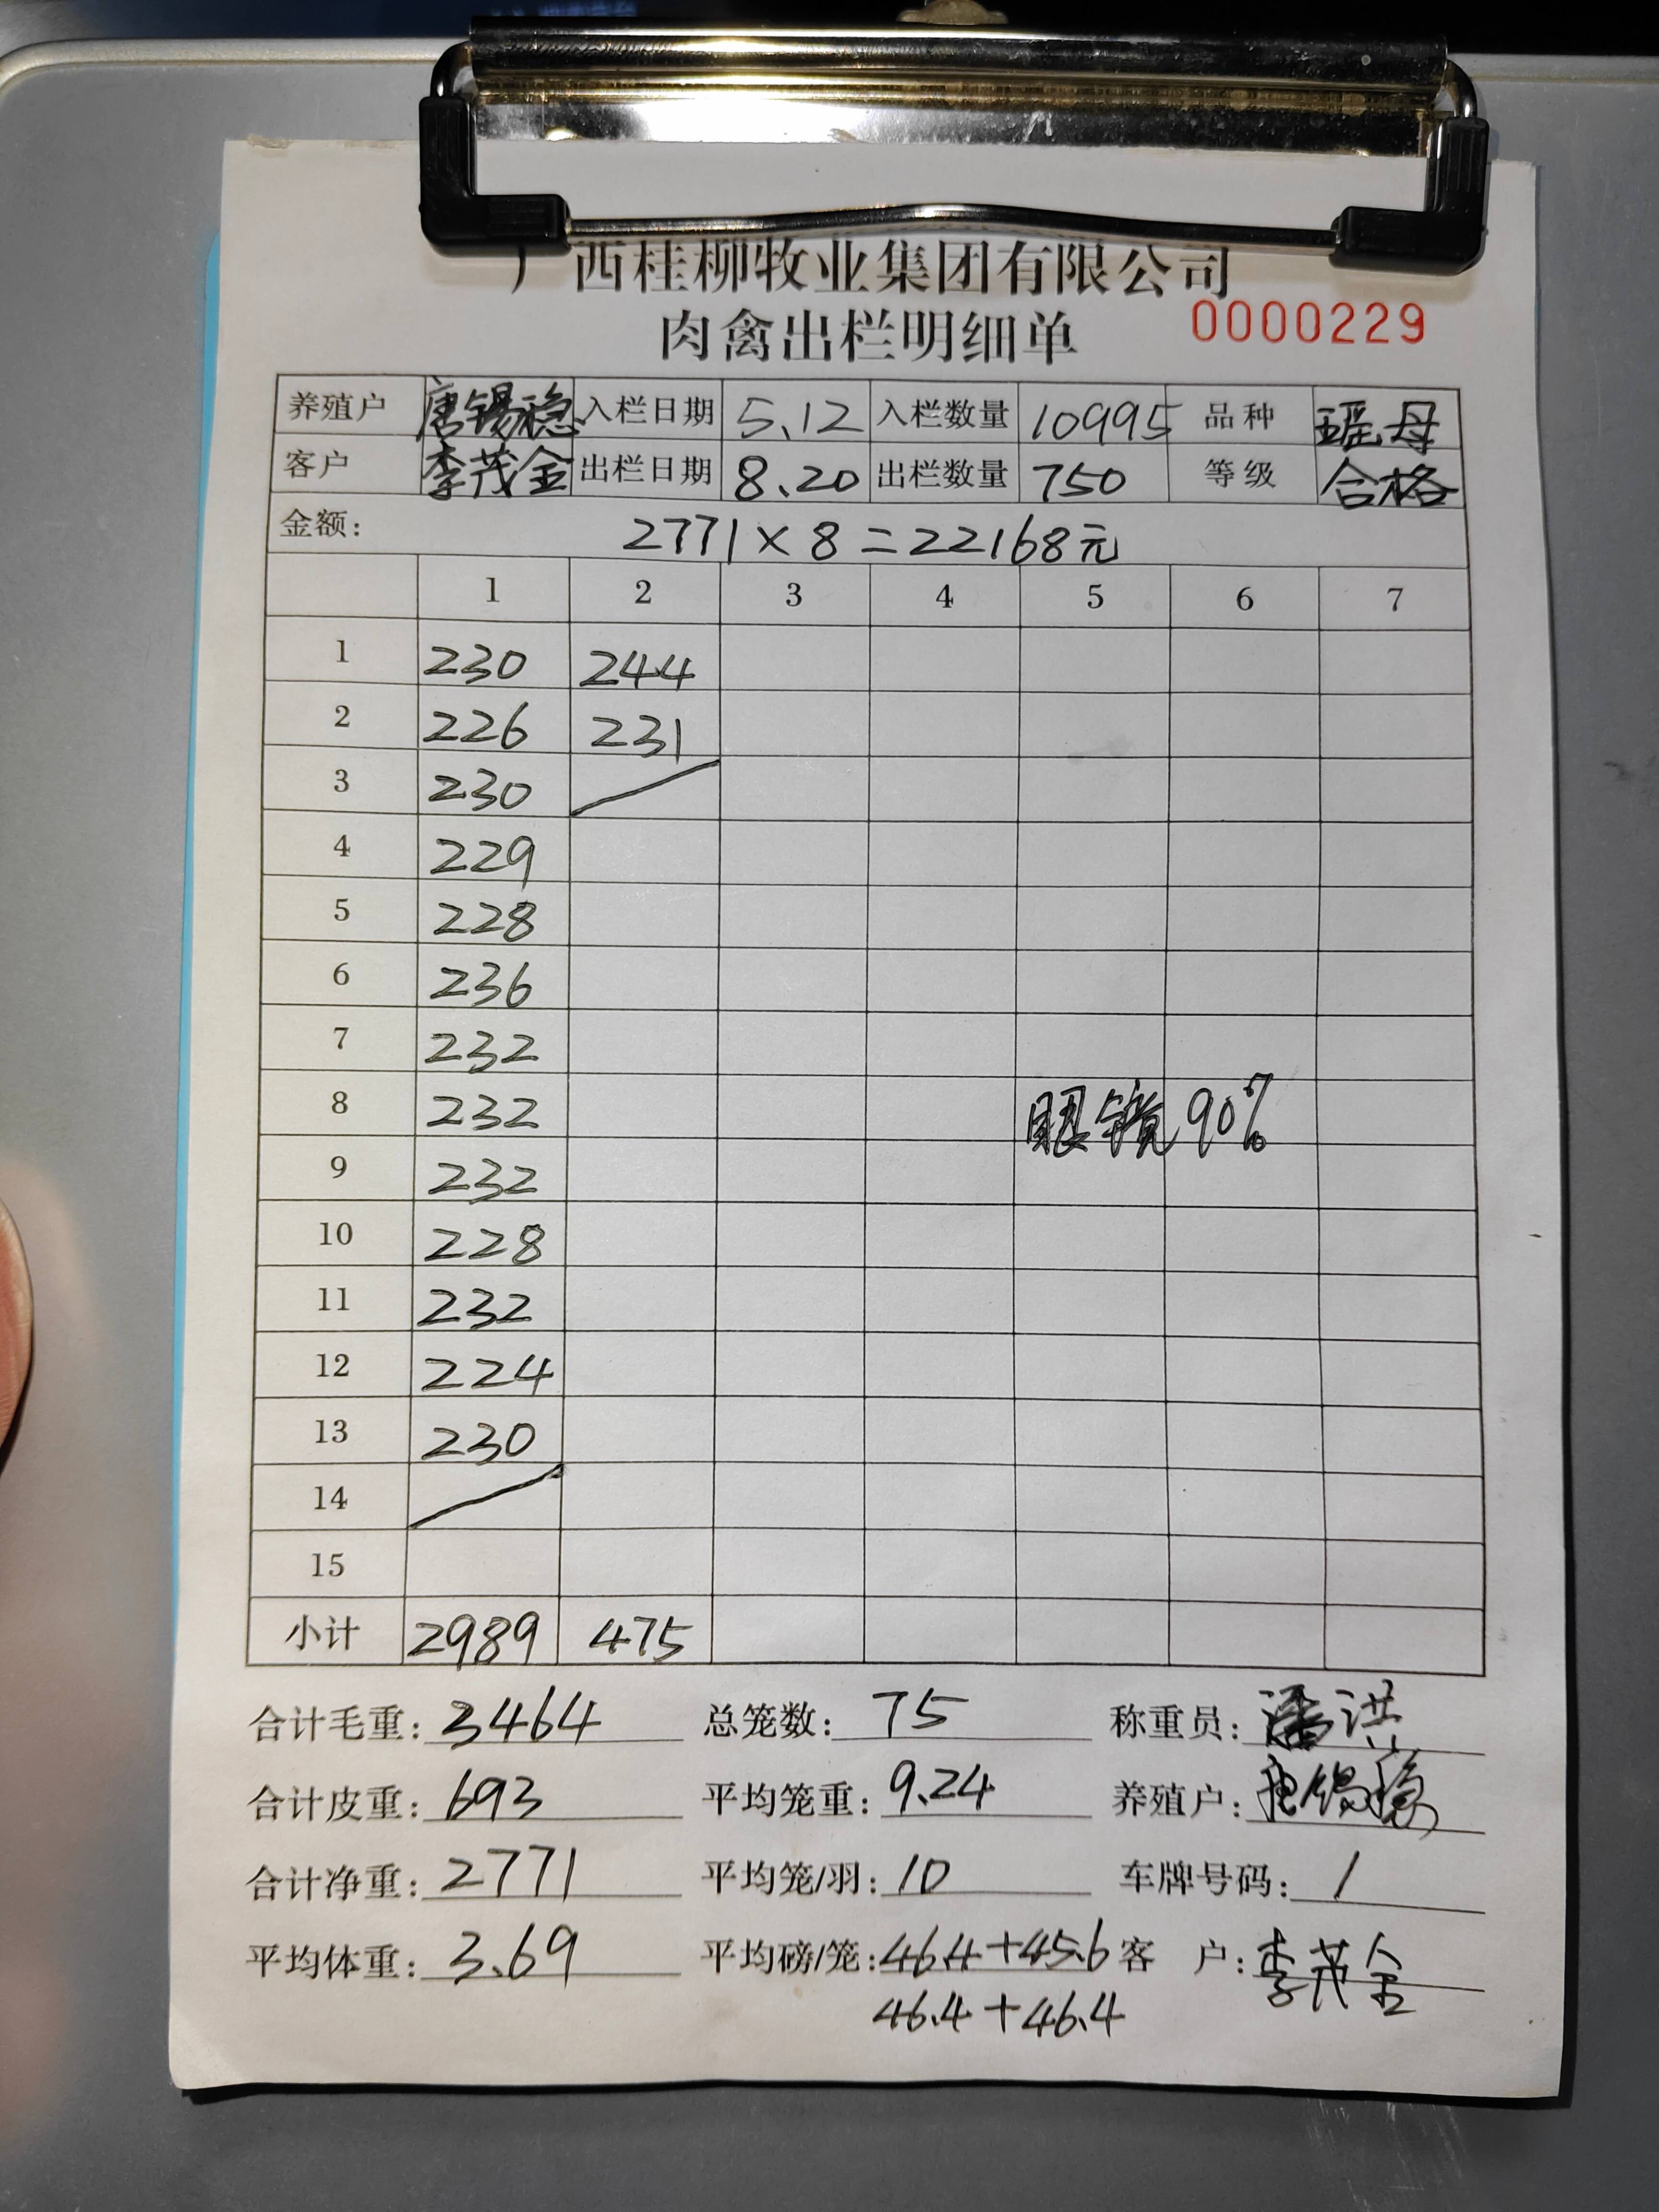 广西桂柳牧业集团有限公司
肉禽出栏明细单 0000229
养殖户 唐锡稳 入栏日期 5.12 入栏数量 10995 品种 瑶母
客户 李茂金 出栏日期 8.20 出栏数量 750 等级 合格
金额: 2771×8=22168元
1 2 3 4 5 6 7
1 230 244
2 226 231
3 230
4 229
5 228
6 236
7 232
8 232 眼镜90%
9 232
10 228
11 232
12 224
13 230
14
15
小计 2989 475
合计毛重: 3464 总笼数: 75 称重员: 潘洪
合计皮重: 693 平均笼重: 9.24 养殖户: 唐锡稳
合计净重: 2771 平均笼/羽: 10 车牌号码: /
平均体重: 3.69 平均磅/笼: 46.4+45.6 客 户: 李茂金
46.4+46.4